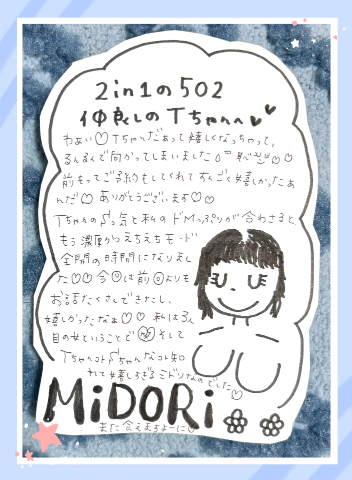 2in1の502
仲良しのTちゃんへ
わぁい♡Tちゃんだぁって嬉しくなっちゃって、
るんるんで向かってしまいました
前もってご予約もしてくれてすんごく嬉しかったぁ
んだ♡ありがとうございます♡♡
TちゃんのドS気と私のドMっぷりが合わさると
もう濃厚かつえちえちモード
全開の時間になりまし
た♡♡今回は前回よりも
お話たくさんできたし、
嬉しかったなぁ♡♡私は3人
目の女ということで そして
TちゃんはSちゃんなコト知
れて嬉しすぎるミドリなのでした♡
MiDORi
また会えますよーに♡